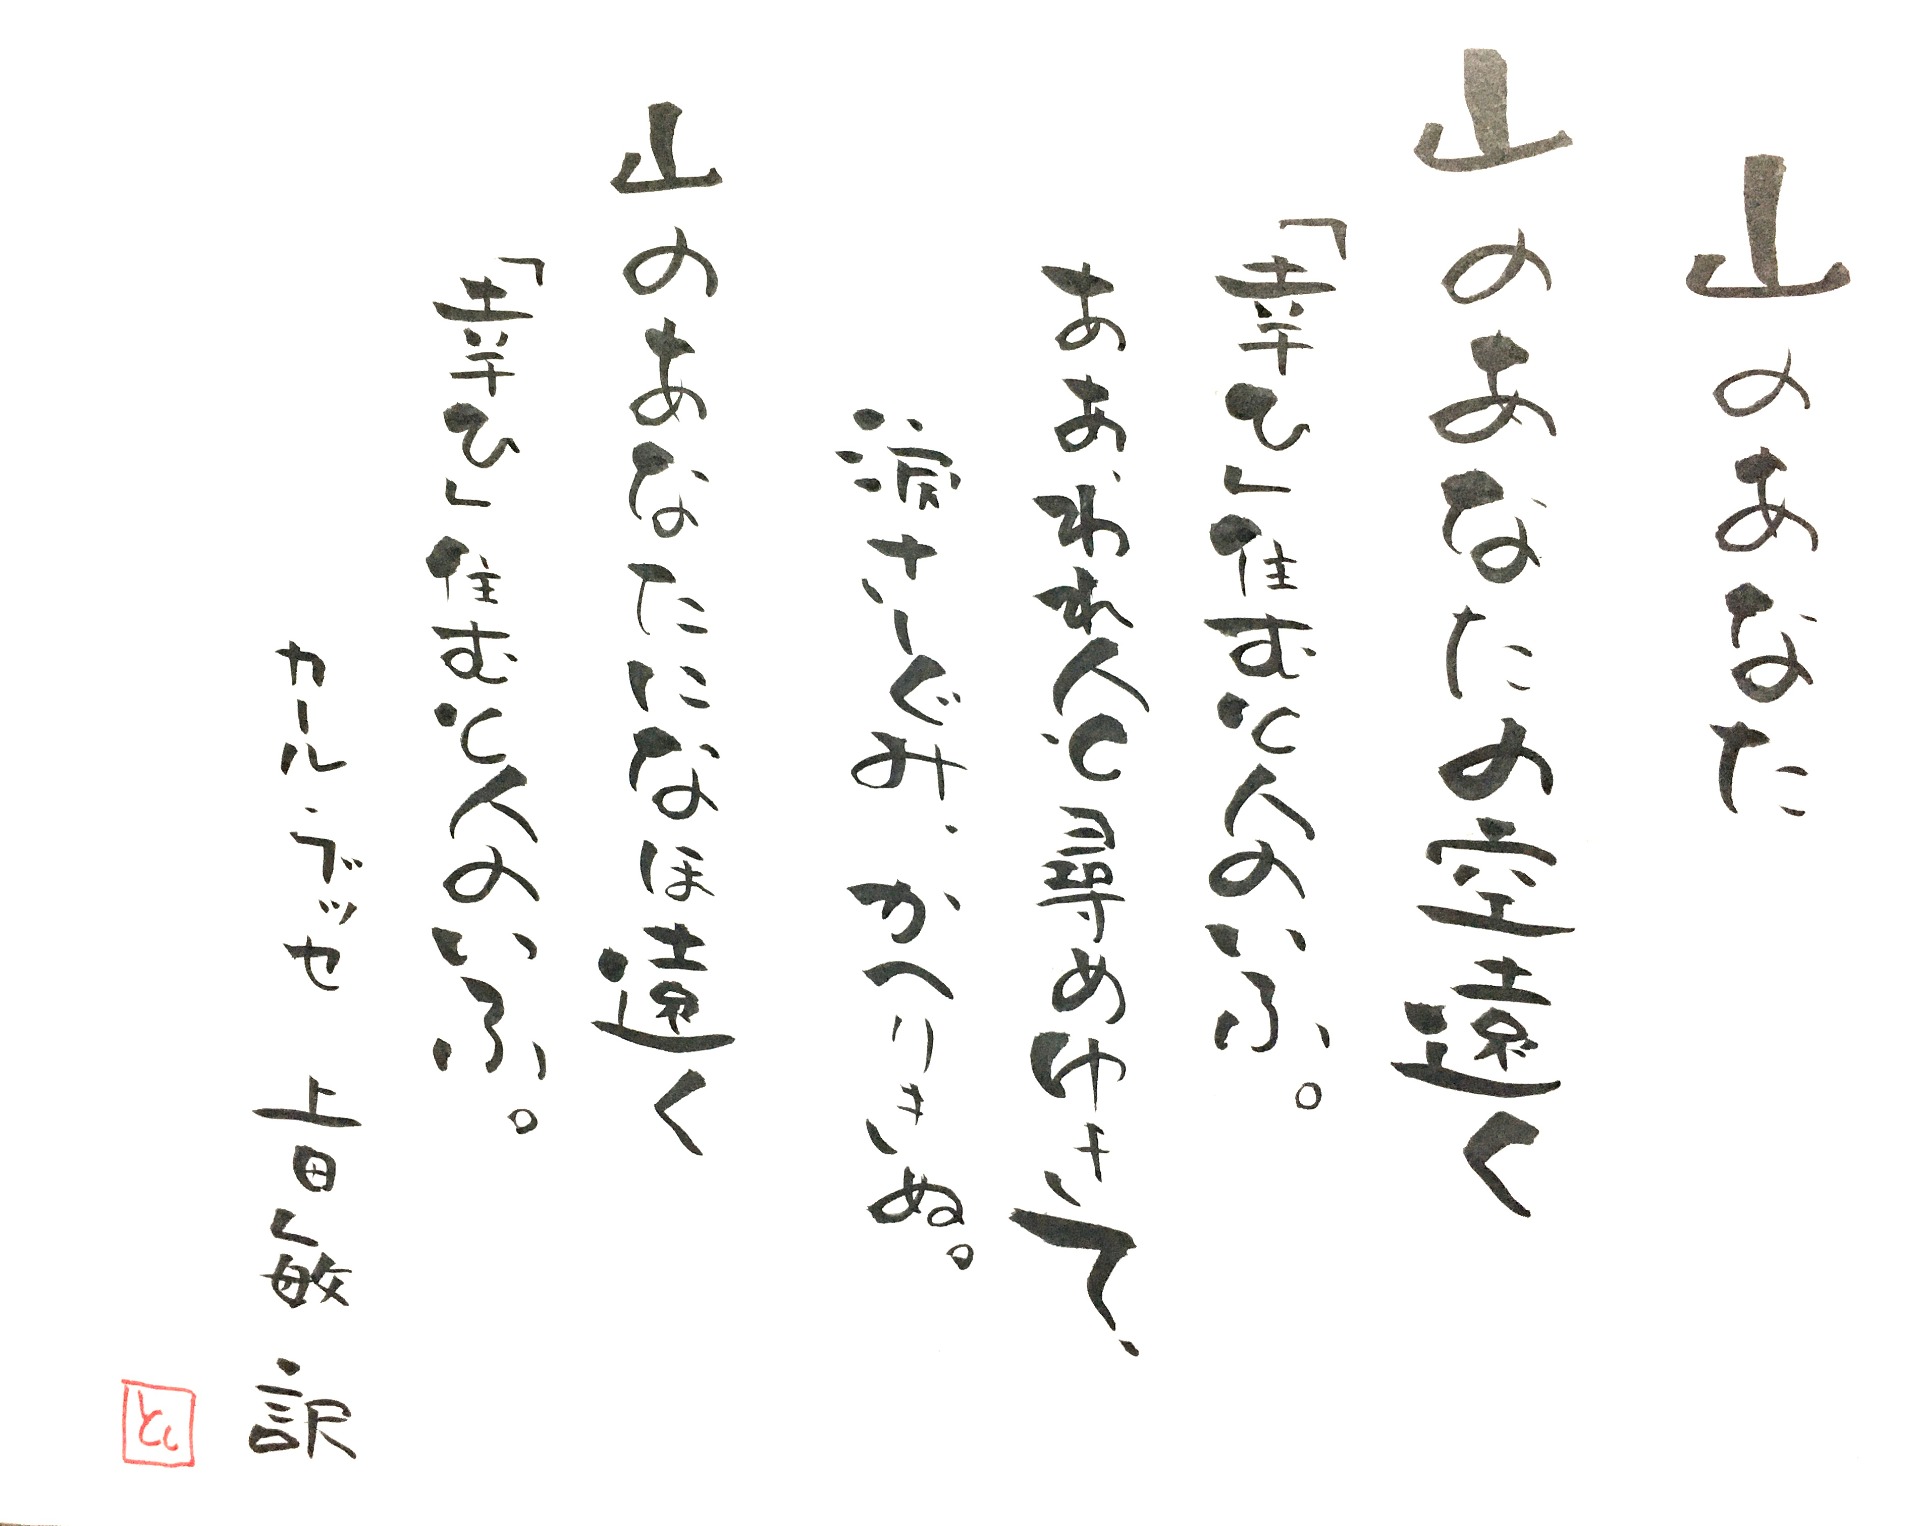 山のあなた
山のあなたの空遠く
「幸ひ」住むと人のいふ。
ああ、われ人と尋めゆきて、
涙さしぐみ、かへりきぬ。
山のあなたになほ遠く
「幸ひ」住むと人のいふ。
カール・ブッセ 上田敏 訳
とし